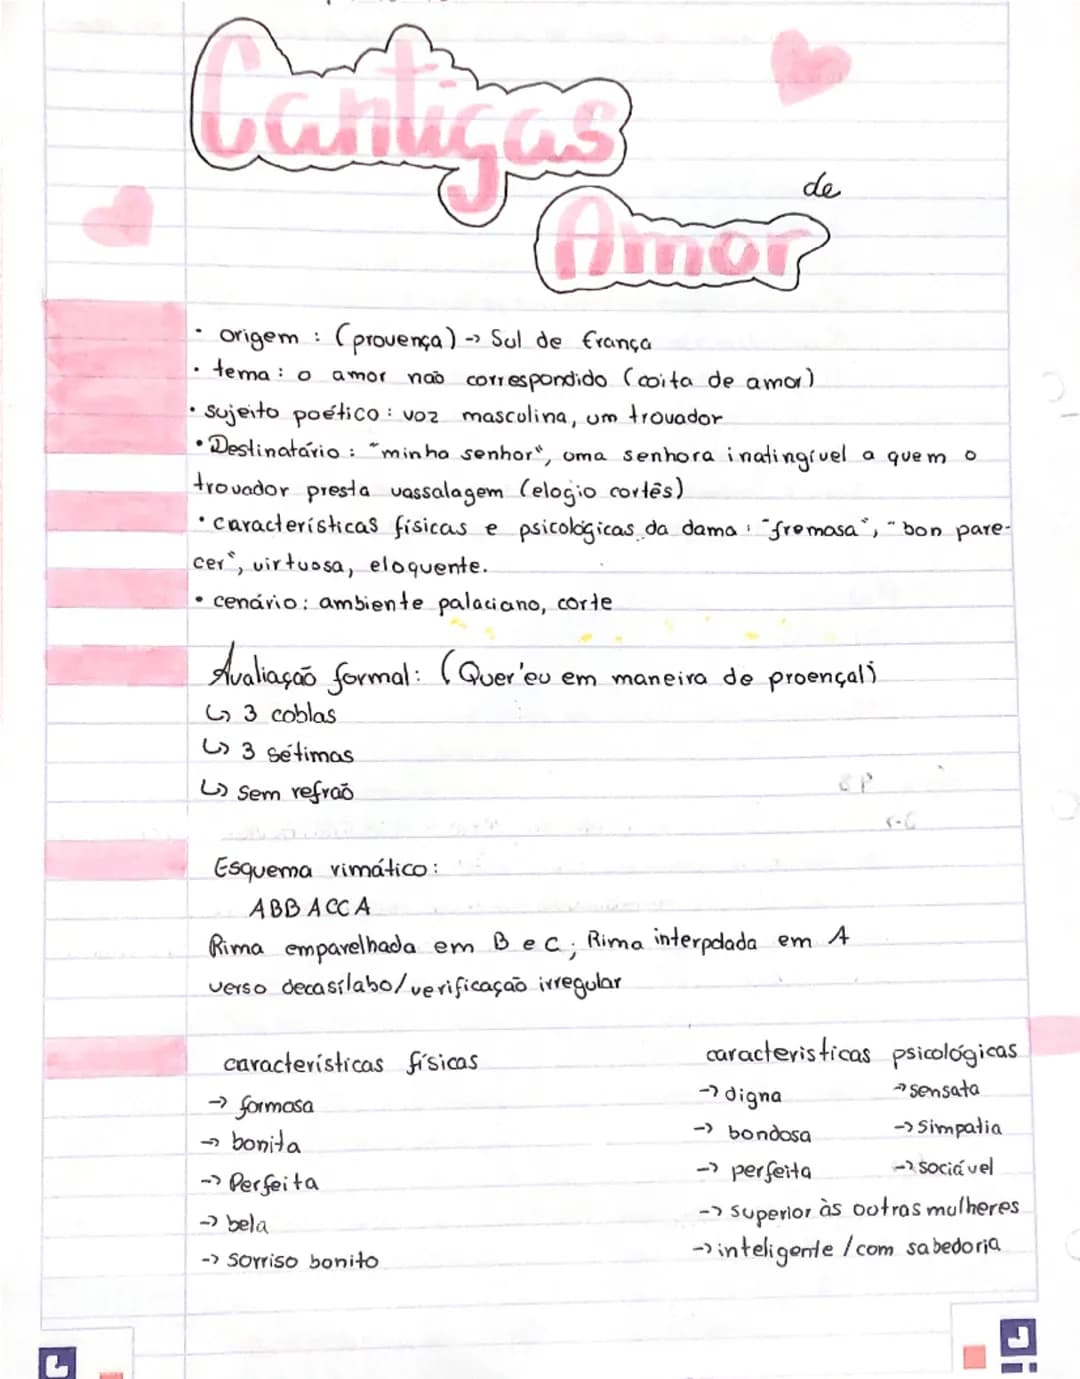 Cantigas
de
Amor
• origem : (provença) -> Sul de França
• tema : o amor não correspondido (coita de amor)
• sujeito poético : voz masculina, um trovador
• Destinatário : "minha senhor", uma senhora inatingível a quem o
trovador presta vassalagem (elogio cortês)
• características físicas e psicológicas da dama : "fremosa", "bon pare-
cer", virtuosa, eloquente.
• cenário : ambiente palaciano, corte
Avaliação formal: (Quer'eu em maneira de proençal)
↳ 3 coblas
↳ 3 sétimas
↳ Sem refrão
Esquema rimático:
ABB ACC A
Rima emparelhada em B e C; Rima interpolada em A
verso decasílabo/verificação irregular
características físicas
-> formosa
-> bonita
-> Perfeita
-> bela
-> Sorriso bonito
caracteristicas psicológicas
-> digna -> sensata
-> bondosa -> Simpatia
-> perfeita -> sociável
-> superior às outras mulheres
-> inteligente / com sabedoria